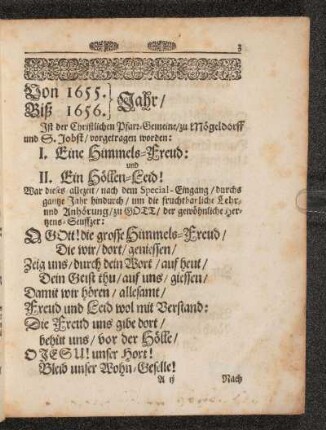 3
Von 1655.
Biß 1656. } Jahr /
Ist der Christlichen Pfarr-Gemeine / zu Mögeldorff
und S. Jobst / vorgetragen worden:
I. Eine Himmels-Freud:
und
II. Ein Höllen-Leid!
War dieses allezeit / nach dem Special-Eingang / durchs
gantze Jahr hindurch / um die fruchtbarliche Lehr-
und Anhörung / zu GOTT / der gewöhnliche Her-
tzens-Seuffzer:
O GOtt! die grosse Himmels-Freud /
Die wir / dort / geniessen /
Zeig uns / durch dein Wort / auf heut /
Dein Geist thu / auf uns / giessen /
Damit wir hören / allesamt /
Freud und Leid wol mit Verstand:
Die Freud uns gibe dort /
behüt uns / vor der Hölle /
O JESU! unser Hort!
Bleib unser Wohn-Geselle!
A ij Nach